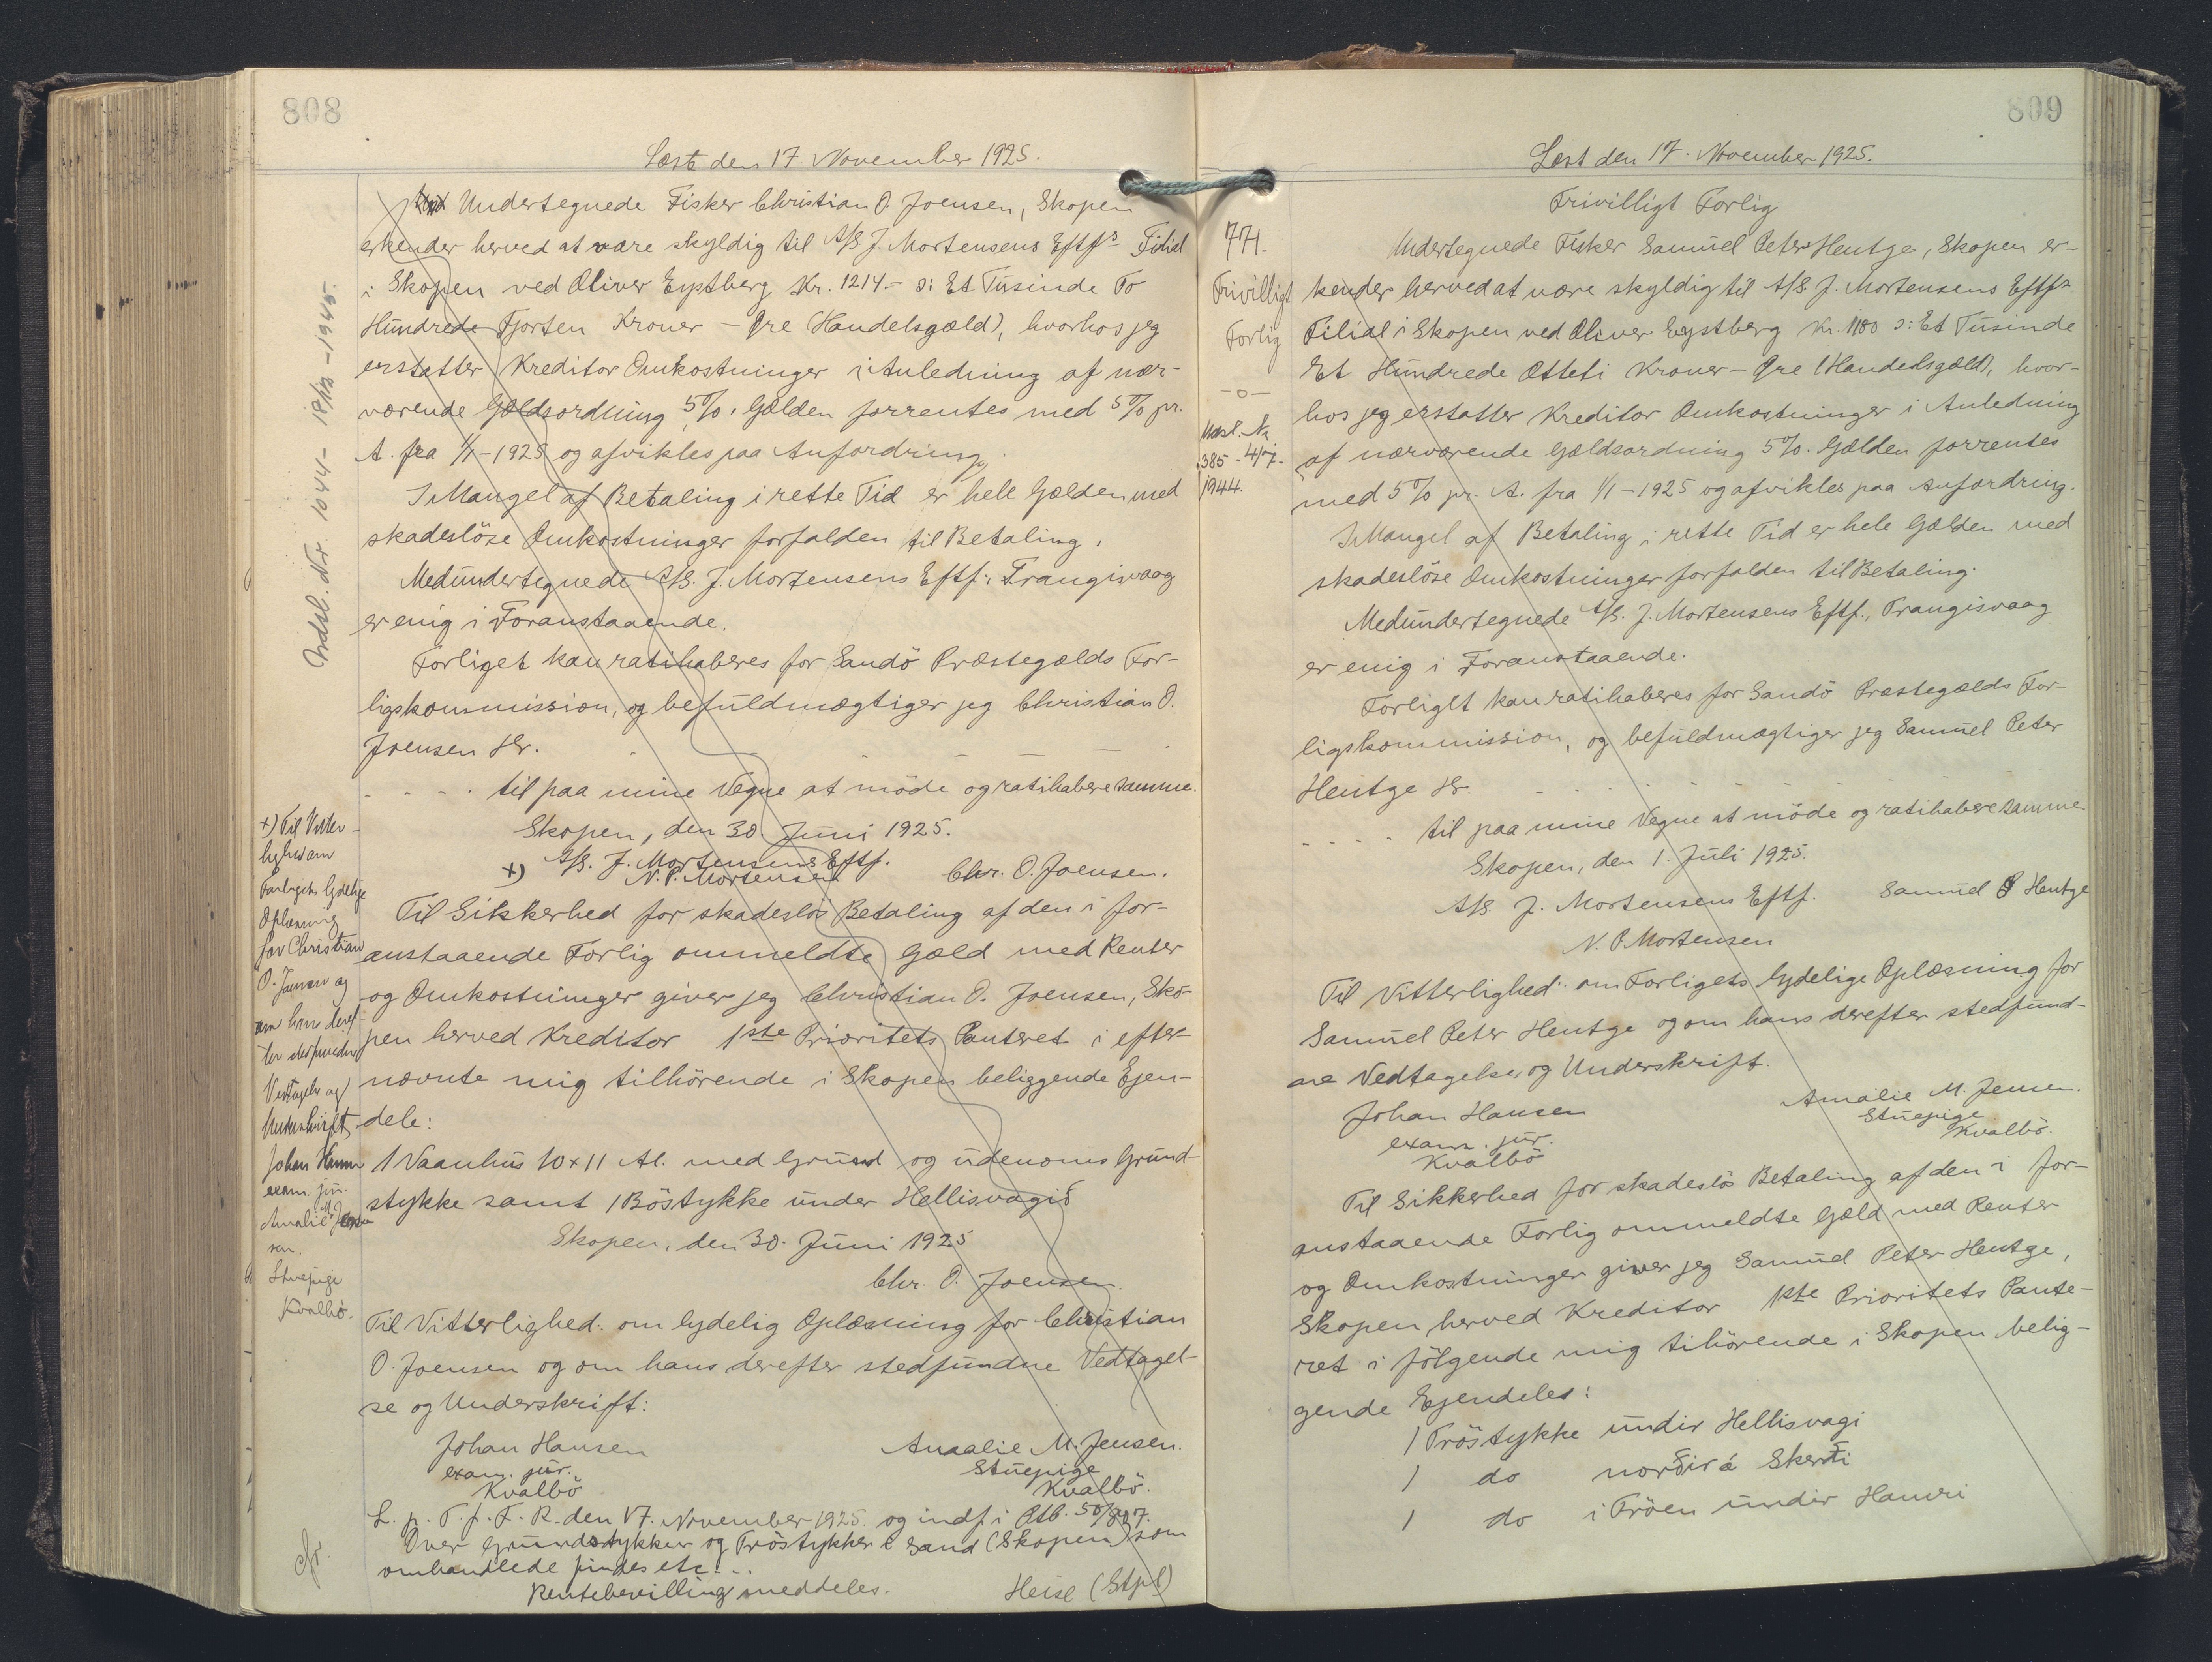 808
Læst den 17 November 1925.
Undertegnede Fisker Christian O. Joensen, Skopen
erkender herved at være skyldig til A/S J. Mortensens Eftfs Filial
i Skopen ved Oliver Eystberg Kr. 1214.- ɔ: Et Tusinde To
Hundrede Fjorten Kroner - Øre (Handelsgæld), hvorhos jeg
erstatter Kreditor Omkostninger i Anledning af nær-
værende Gældsordning 5%. Gælden forrentes med 5% pr.
A. fra 1/1-1925 og afvikles paa Anfordring.
I Mangel af Betaling i rette Tid er hele Gælden med
skadesløse Omkostninger forfalden til Betaling.
Medundertegnede A/S. J. Mortensens Eftf. Trangisvaag
er enig i Foranstaaende.
Forliget kan ratihaberes for Sandö Præstegælds For-
ligskommission, og befuldmægtiger jeg Christian O.
Joensen Hr.
til paa mine Vegne at möde og ratihabere samme.
Skopen, den 30. Juni 1925.
+) A/S. J. Mortensens Eftf.
N. P. Mortensen Chr. O. Joensen.
Til Sikkerhed for skadeslös Betaling af den i for-
anstaaende Forlig ommeldte Gæld med Renter
og Omkostninger giver jeg Christian O. Joensen, Sko-
pen herved Kreditor 1ste Prioritets Panteret i efter-
nævnte mig tilhörende i Skopen beliggende Ejen-
dele:
1 Vaanhus 10 x 11 Al. med Grund og udenoms Grund-
stykke samt 1 Böstykke under Hellisvagið
Skopen, den 30. Juni 1925
Chr. O. Joensen.
Til Vitterlighed. om lydelig Oplæsning for Christian
O. Joensen og om hans derefter stedfundne Vedtagel-
se og Underskrift:
Johan Hansen Amalie M. Jensen.
exam. jur. Stuepige
Kvalbö Kvalbö.
L. p. T. f. F. R. den 17. November 1925. og indf i Ptb. 50/807.
Over Grundstykker og Tröstykker i Sand (Skopen) som
omhandlede findes etc...
Rentebevilling meddeles. Heise (Stpl)
Indsl. Nr. 1044 - 18/12 - 1945.
+) Til Vitter-
lighed om
Forligets lydelige
Oplæsning
for Christian
O. Joensen og
om hans deref-
ter stedfundne
Vedtagelse og
Underskrift
Johan Hansen
exam. jur.
Amalie M. Jen-
sen.
Stuepige
Kvalbö.
809
Læst den 17. November 1925.
Frivilligt Forlig
774.
Frivilligt
Forlig
-o-
Udsl. Nr.
385 - 4/7-
1944.
Undertegnede Fisker Samuel Peter Hentze, Skopen er-
kender herved at være skyldig til A/S. J. Mortensens Eftfs
Filial i Skopen ved Oliver Eystberg Kr. 1180 ɔ: Et Tusinde
Et Hundrede Otteti Kroner - Øre (Handelsgæld), hvor-
hos jeg erstatter Kreditor Omkostninger i Anledning
af nærværende Gældsordning 5%. Gælden forrentes
med 5% pr. A. fra 1/1-1925 og afvikles paa Anfordring.
I Mangel af Betaling i rette Tid er hele Gælden med
skadeslöse Omkostninger forfalden til Betaling.
Medundertegnede A/S. J. Mortensens Eftf., Trangisvaag
er enig i Foranstaaende.
Forliget kan ratihaberes for Sandö Præstegælds For-
ligskommission, og befuldmægtiger jeg Samuel Peter
Hentze Hr.
til paa mine Vegne at möde og ratihabere samme
Skopen, den 1. Juli 1925.
A/S. J. Mortensens Eftf. Samuel P Hentze
N. P. Mortensen
Til Vitterlighed: om Forligets lydelige Oplæsning for
Samuel Peter Hentze og om hans derefter stedfund-
ne Vedtagelse og Underskrift.
Johan Hansen Amalie M. Jensen.
exam. jur. Stuepige
Kvalbö Kvalbö.
Til Sikkerhed for skadeslös Betaling af den i for-
anstaaende Forlig ommeldte Gæld med Renter
og Omkostninger giver jeg Samuel Peter Hentze,
Skopen herved Kreditor 1ste Prioritets Pante-
ret i fölgende mig tihörende i Skopen belig-
gende Ejendeles:
1 Tröstykke undir Hellisvagi
1 do norðir á Skerði
1 do i Tröen undir Hamri